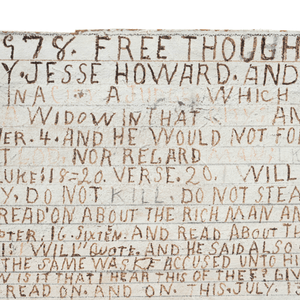 978. FREE THOUGH
Y. JESSE HOWARD. AND
IN A A WHICH
WIDOW IN THAT AN
ER. 4. AND HE WOULD NOT FO
T NOR REGARD
LUKE 18=20. VERSE. 20. WILL
Y, DO NOT KILL, DO NOT STEA
READ ON ABOUT THE RICH MAN AN
PTER. 16. SIXTEN. AND READ ABOUT THE
I WILL QUOTE. AND HE SAID ALSO
THE SAME WAS ACCUSED UNTO HI
W IS IT THAT I HEAR THIS OF THEE? GIV
READ ON. AND ON. THIS. JULY. 13